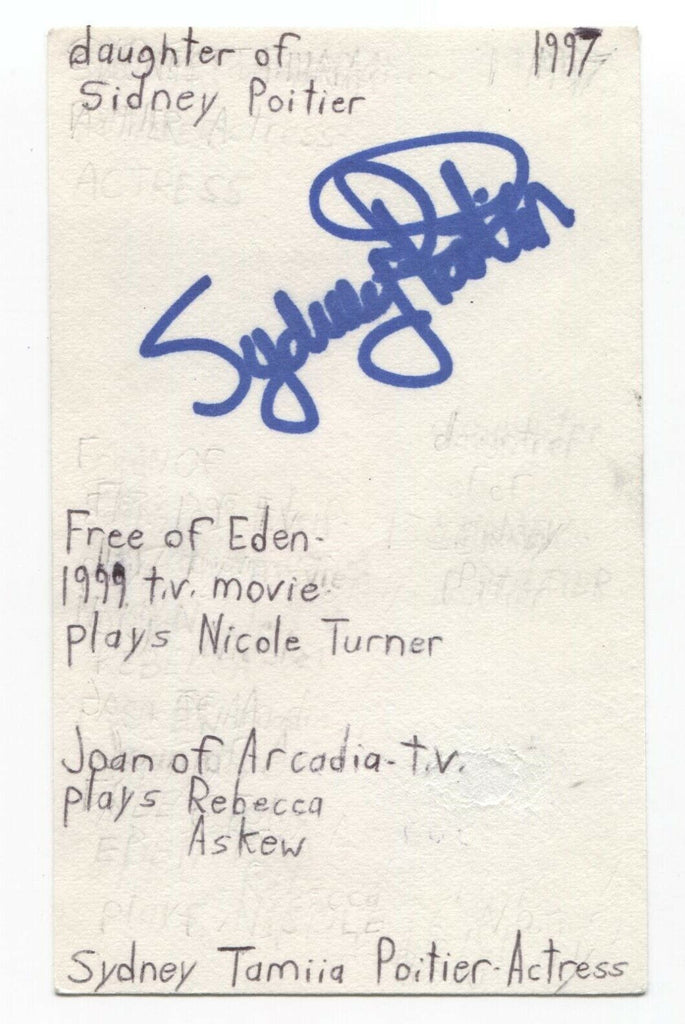 daughter of 1997
Sidney Poitier
Sydney Poitier
Free of Eden-
1999 t.v. movie-
plays Nicole Turner
Joan of Arcadia-t.v.
plays Rebecca
Askew
Sydney Tamiia Poitier-Actress